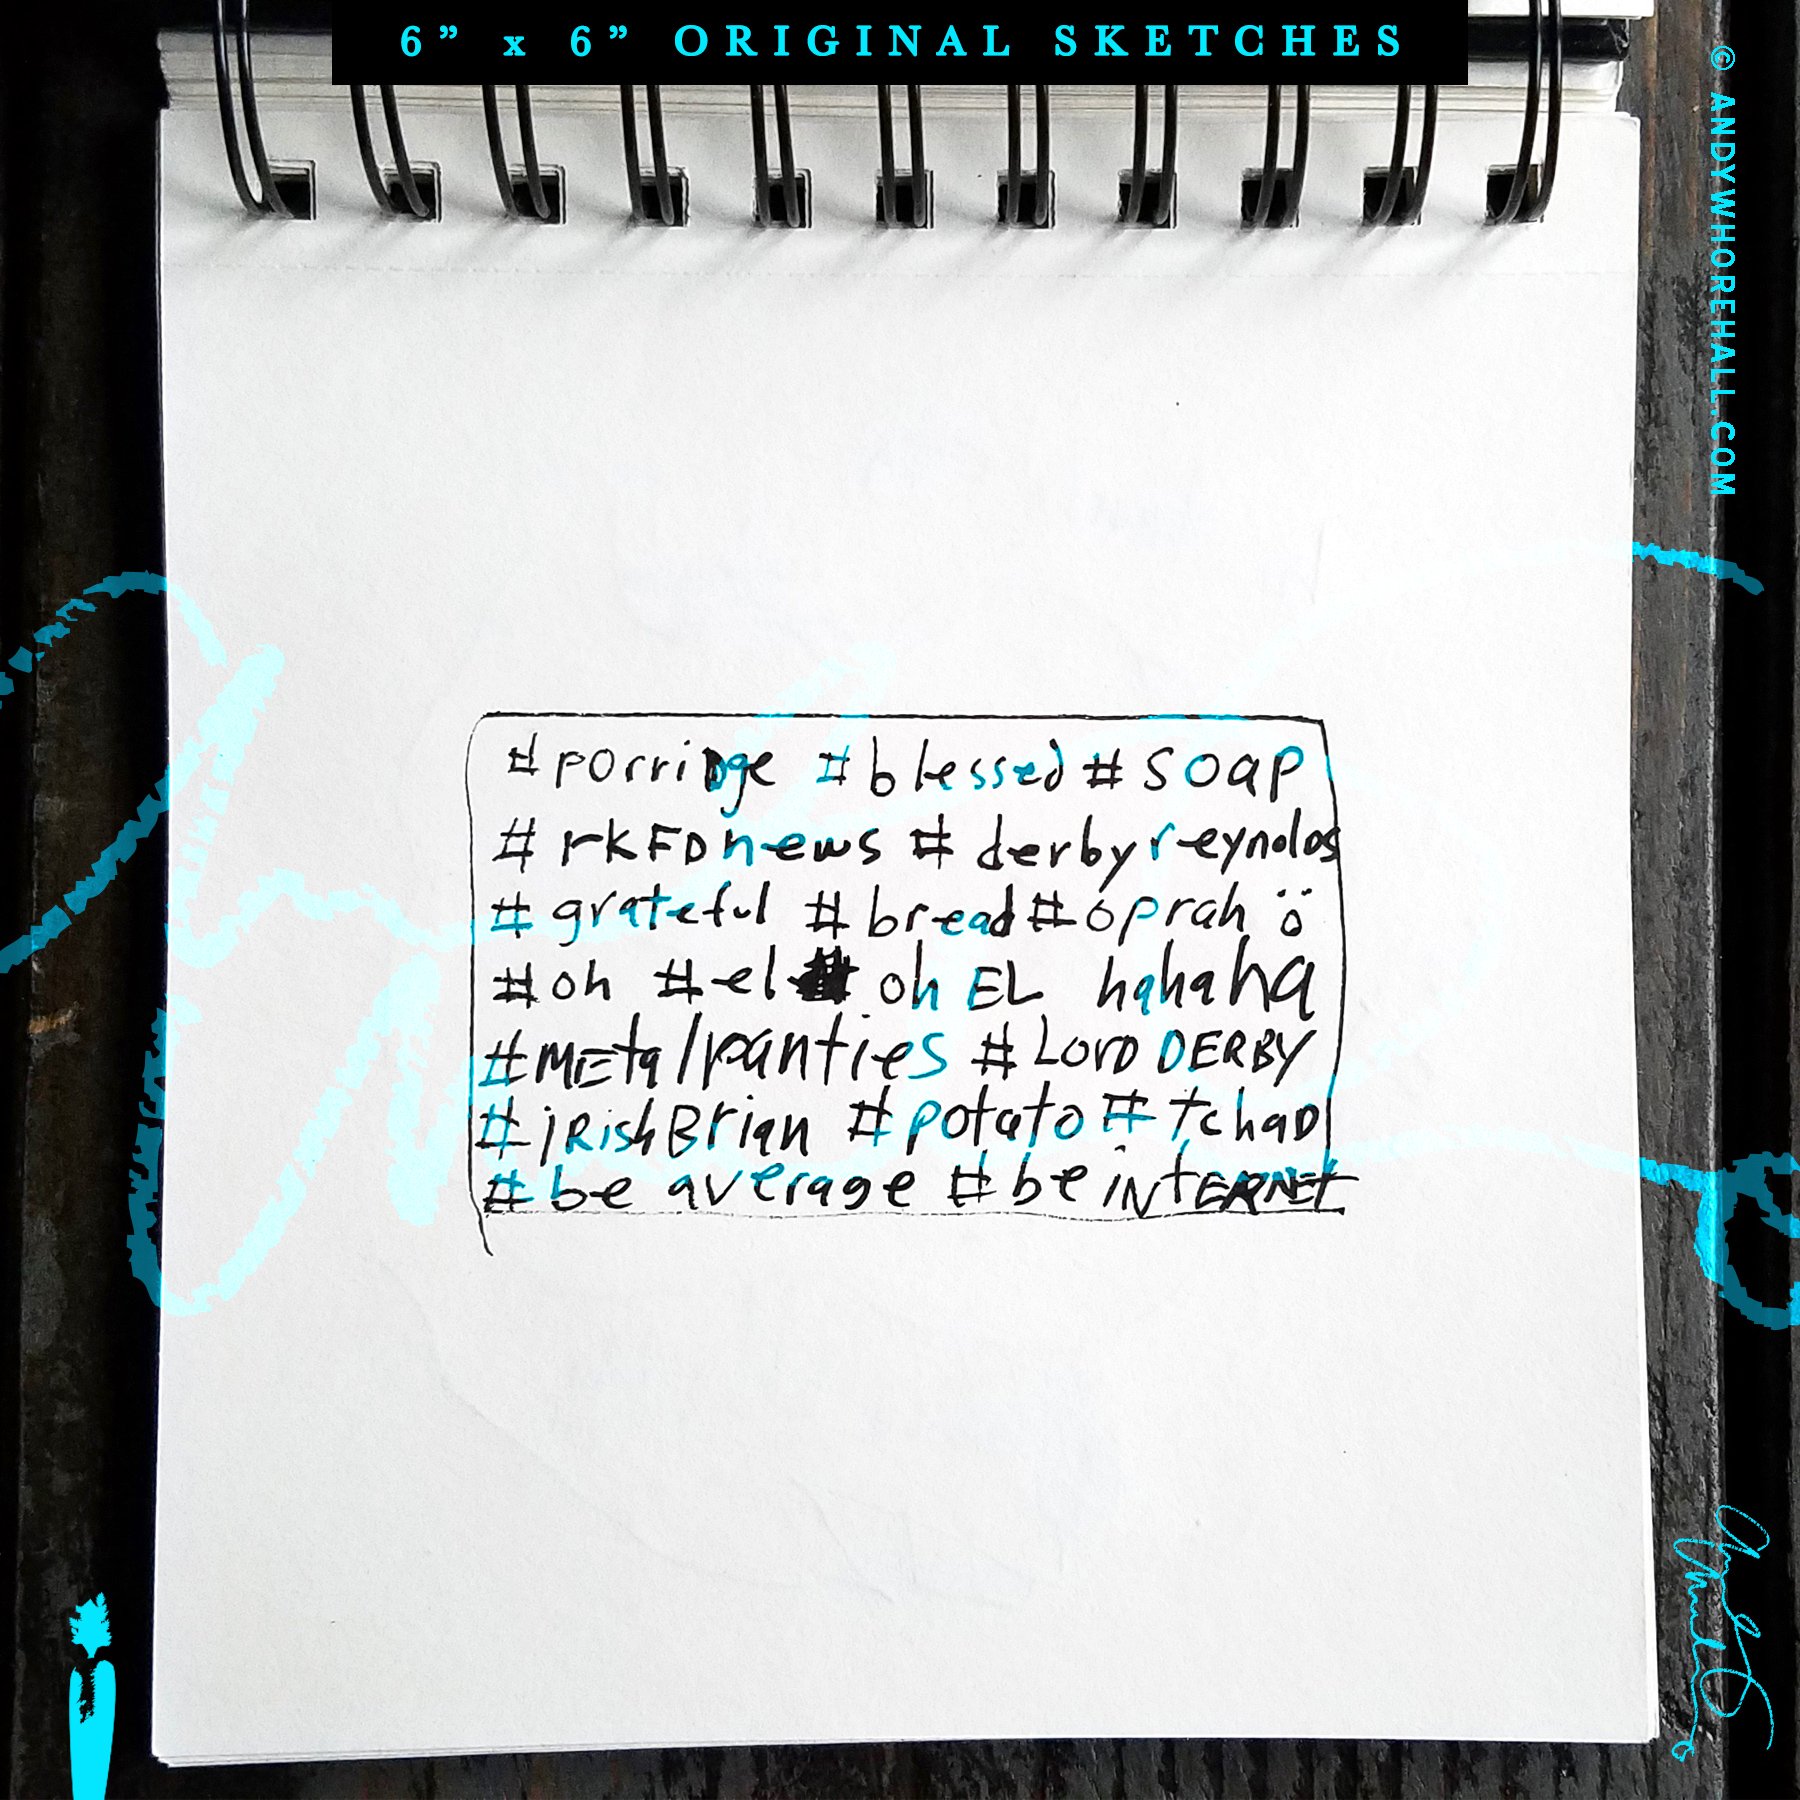 6” x 6” ORIGINAL SKETCHES
© ANDYWHOREHALL.COM
#porriDge #blessed #soap
#rKFDnews #derbyreynolds
#grateful #bread #oprah
#oh #el oh EL hahaha
#METalpanties #LorD DERBY
#iRishBrian #potato #tchaD
#be average #be iNtERNEt